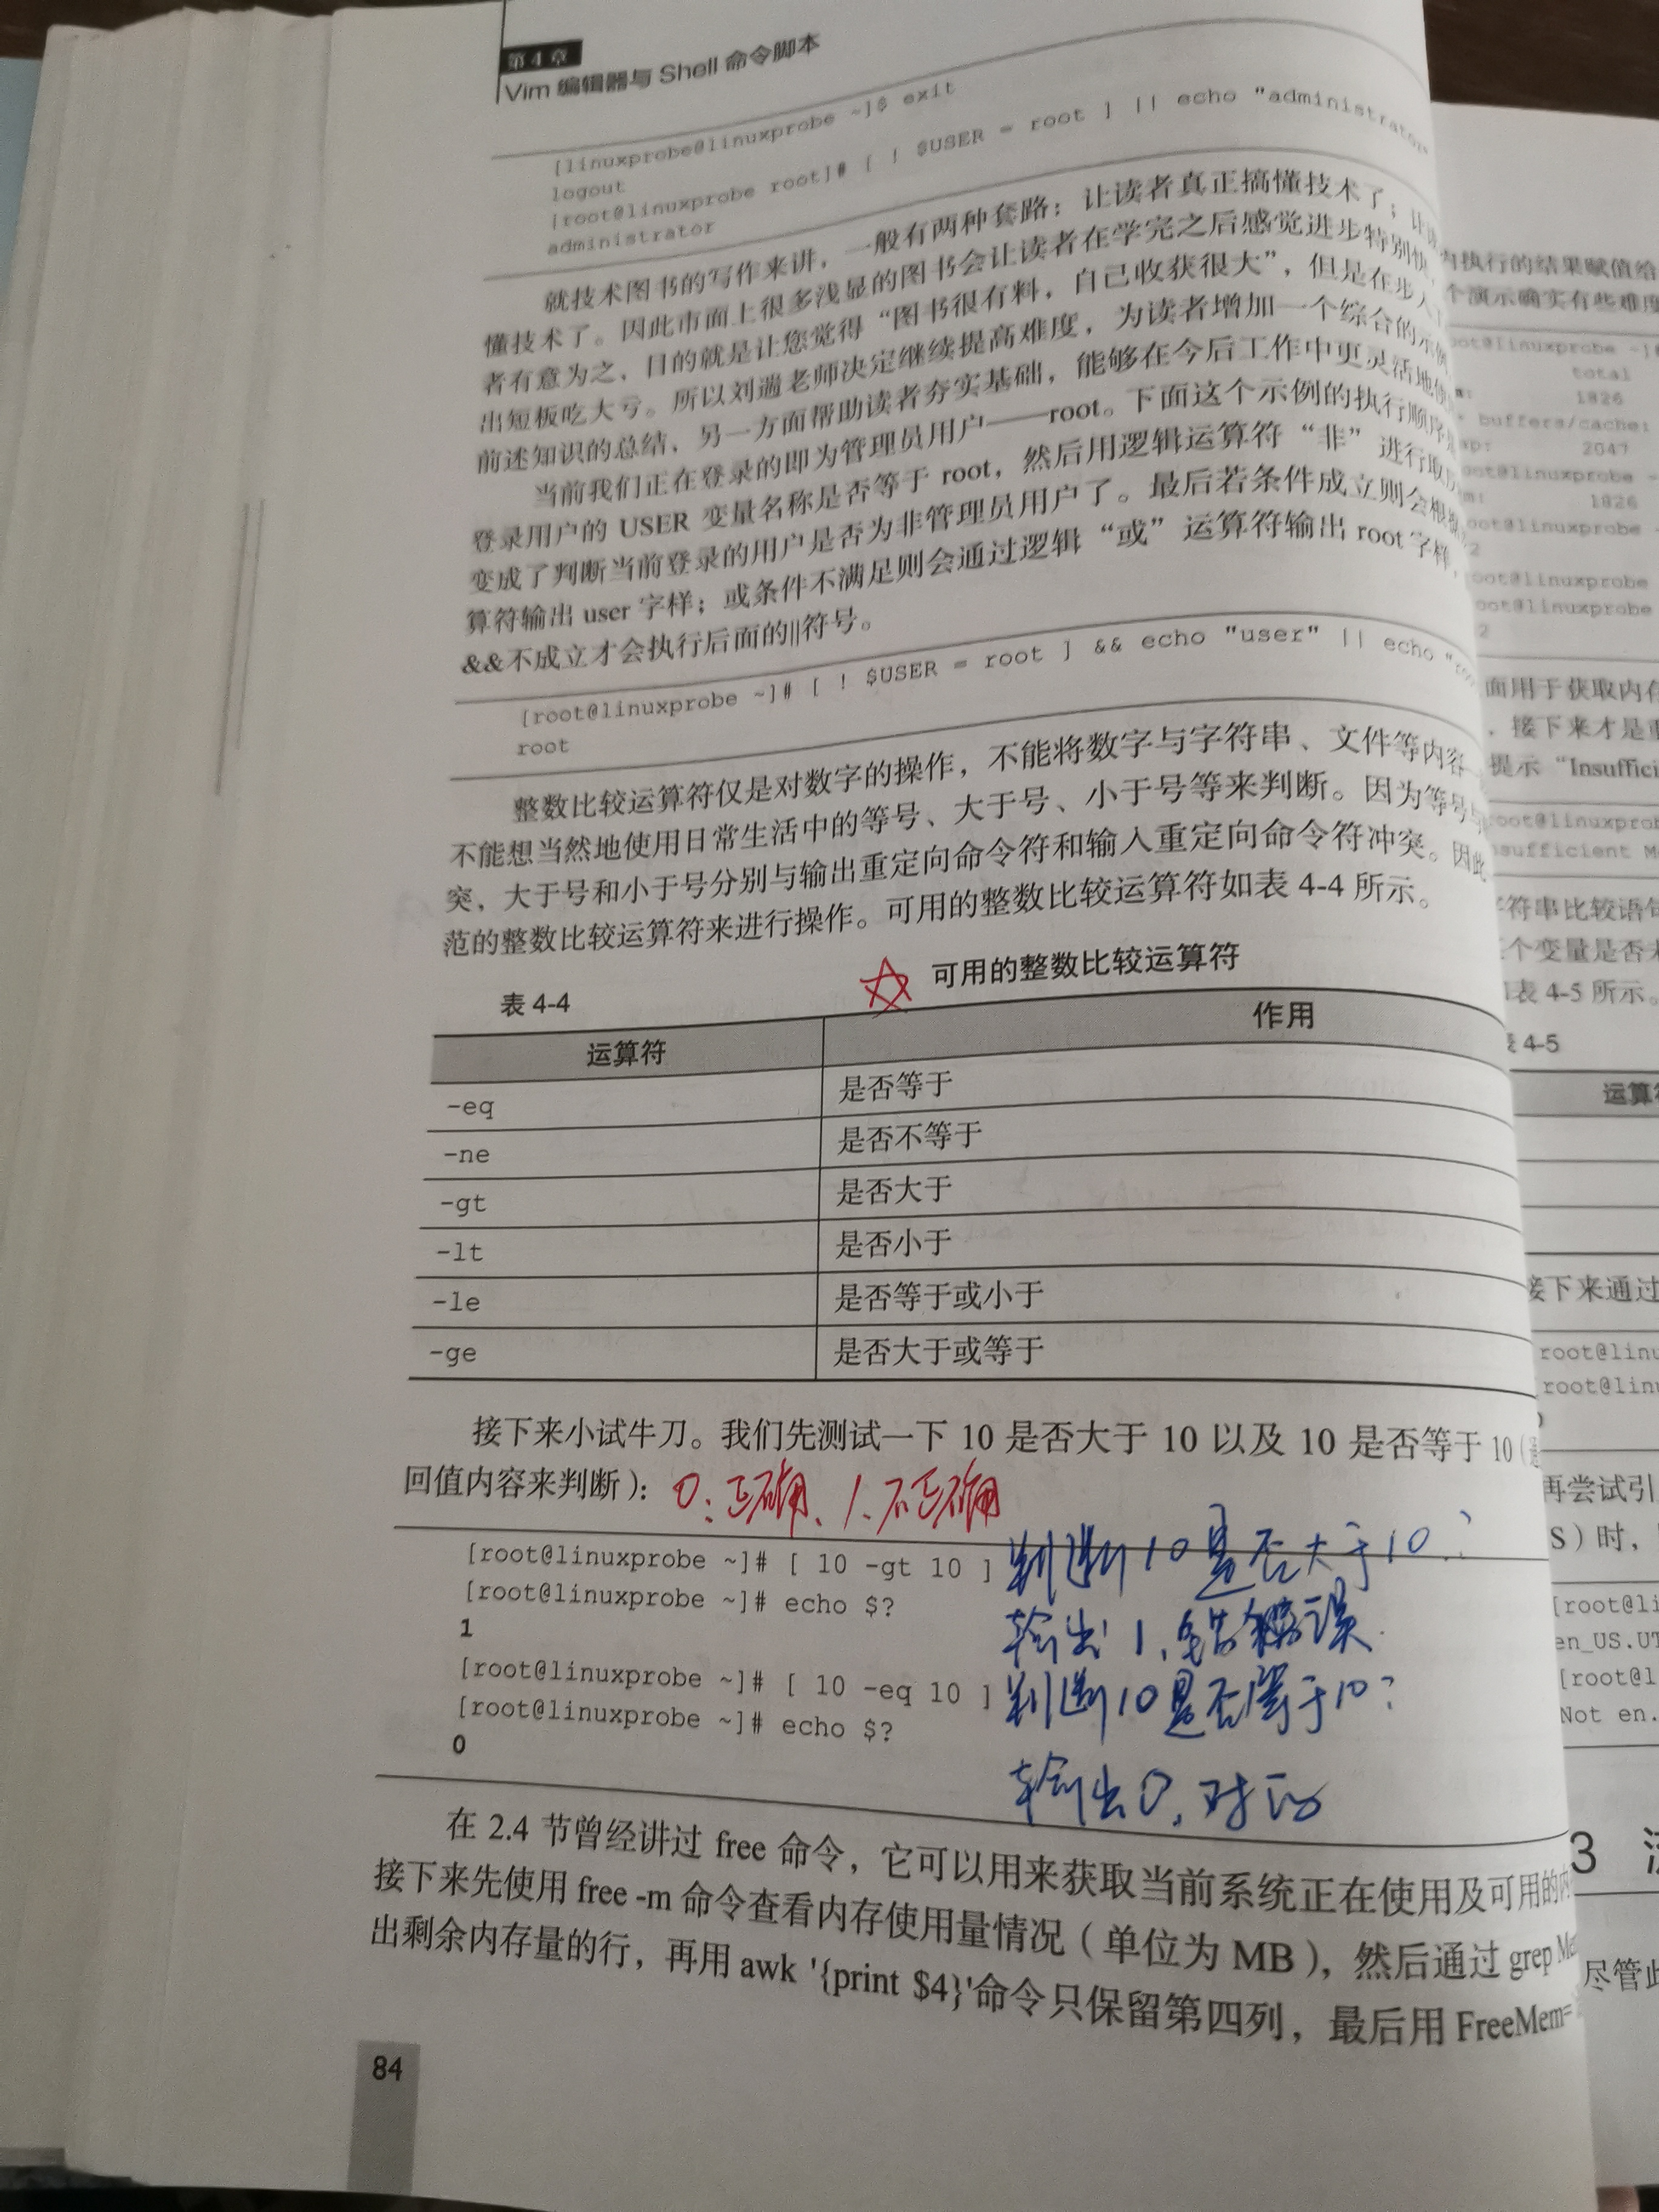 第4章
Vim 编辑器与 Shell 命令脚本
[linuxprobe@linuxprobe ~]$ exit
logout
[root@linuxprobe root]# [ ! $USER = root ] || echo "administrator"
administrator
就技术图书的写作来讲，一般有两种套路：让读者真正搞懂技术了；让
懂技术了。因此市面上很多浅显的图书会让读者在学完之后感觉进步特别快，
者有意为之，目的就是让您觉得“图书很有料，自己收获很大”，但是在步入
出短板吃大亏。所以刘遄老师决定继续提高难度，为读者增加一个综合的示例，
前述知识的总结，另一方面帮助读者夯实基础，能够在今后工作中更灵活地使
当前我们正在登录的即为管理员用户——root。下面这个示例的执行顺序
登录用户的 USER 变量名称是否等于 root，然后用逻辑运算符“非”进行取
变成了判断当前登录的用户是否为非管理员用户了。最后若条件成立则会根
算符输出 user 字样；或条件不满足则会通过逻辑“或”运算符输出 root 字样，
&&不成立才会执行后面的||符号。
[root@linuxprobe ~]# [ ! $USER = root ] && echo "user" || echo
root
整数比较运算符仅是对数字的操作，不能将数字与字符串、文件等内容
不能想当然地使用日常生活中的等号、大于号、小于号等来判断。因为等号与
突，大于号和小于号分别与输出重定向命令符和输入重定向命令符冲突。因此
范的整数比较运算符来进行操作。可用的整数比较运算符如表 4-4 所示。
表 4-4 可用的整数比较运算符
运算符 作用
-eq 是否等于
-ne 是否不等于
-gt 是否大于
-lt 是否小于
-le 是否等于或小于
-ge 是否大于或等于
接下来小试牛刀。我们先测试一下 10 是否大于 10 以及 10 是否等于 10
回值内容来判断）： 0:正确、1.不正确
[root@linuxprobe ~]# [ 10 -gt 10 ] 判断10是否大于10?
[root@linuxprobe ~]# echo $?
1 输出1,错误
[root@linuxprobe ~]# [ 10 -eq 10 ] 判断10是否等于10?
[root@linuxprobe ~]# echo $?
0
输出0,对的
在 2.4 节曾经讲过 free 命令，它可以用来获取当前系统正在使用及可用的内
接下来先使用 free -m 命令查看内存使用量情况（单位为 MB），然后通过 grep
出剩余内存量的行，再用 awk '{print $4}'命令只保留第四列，最后用 FreeMem=
84
内执行的结果赋值给
个演示确实有些难度
total
1826
buffers/cache:
2047
1826
2
oot@linuxprobe
oot@linuxprobe
2
面用于获取内存
，接下来才是重
提示“Insuffici
root@linuxprob
nsufficient M
字符串比较语句
个变量是否未
表 4-5 所示。
表 4-5
运算符
接下来通过
root@linu
root@linu
再尝试引
S）时，
[root@li
en_US.UT
[root@l
Not en.
3
尽管此